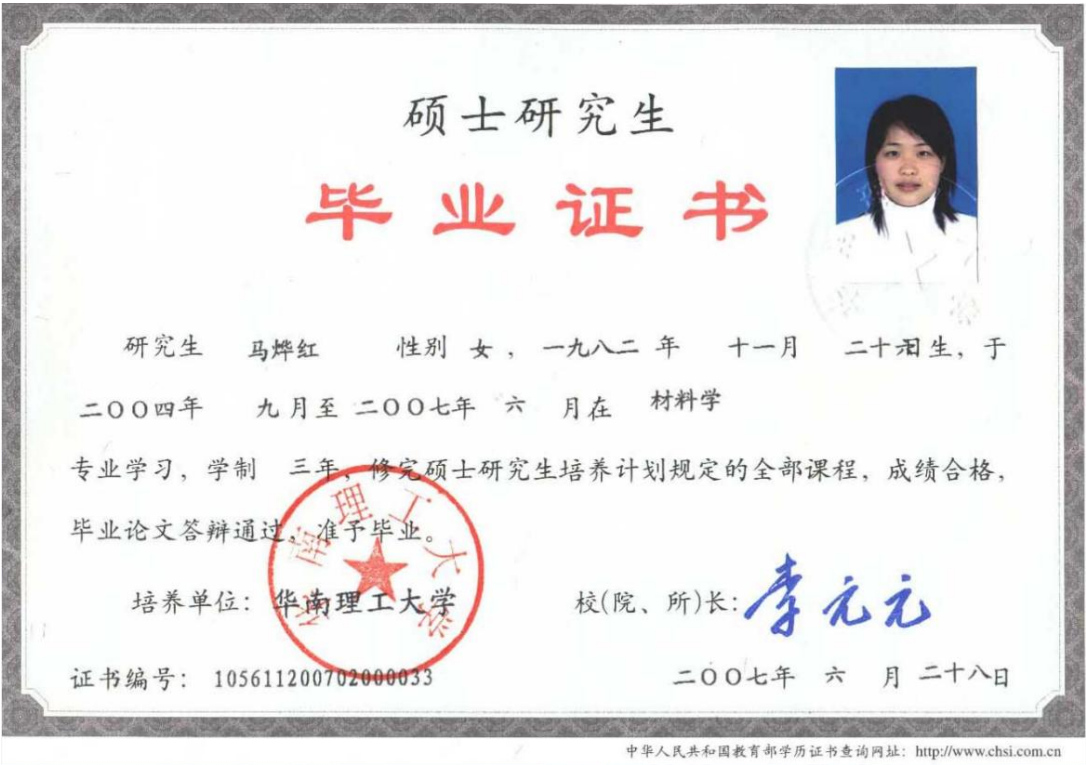 硕士研究生
毕业证书
研究生 马烨红 性别 女，一九八二 年 十一月 二十 日生，于
二〇〇四年 九月至 二〇〇七年 六 月在 材料学
专业学习，学制 三年，修完硕士研究生培养计划规定的全部课程，成绩合格，
毕业论文答辩通过，准予毕业。
华南理工大学
培养单位：华南理工大学 校(院、所)长：李元元
证书编号：105611200702000033 二〇〇七年 六 月 二十八日
中华人民共和国教育部学历证书查询网址：http://www.chsi.com.cn